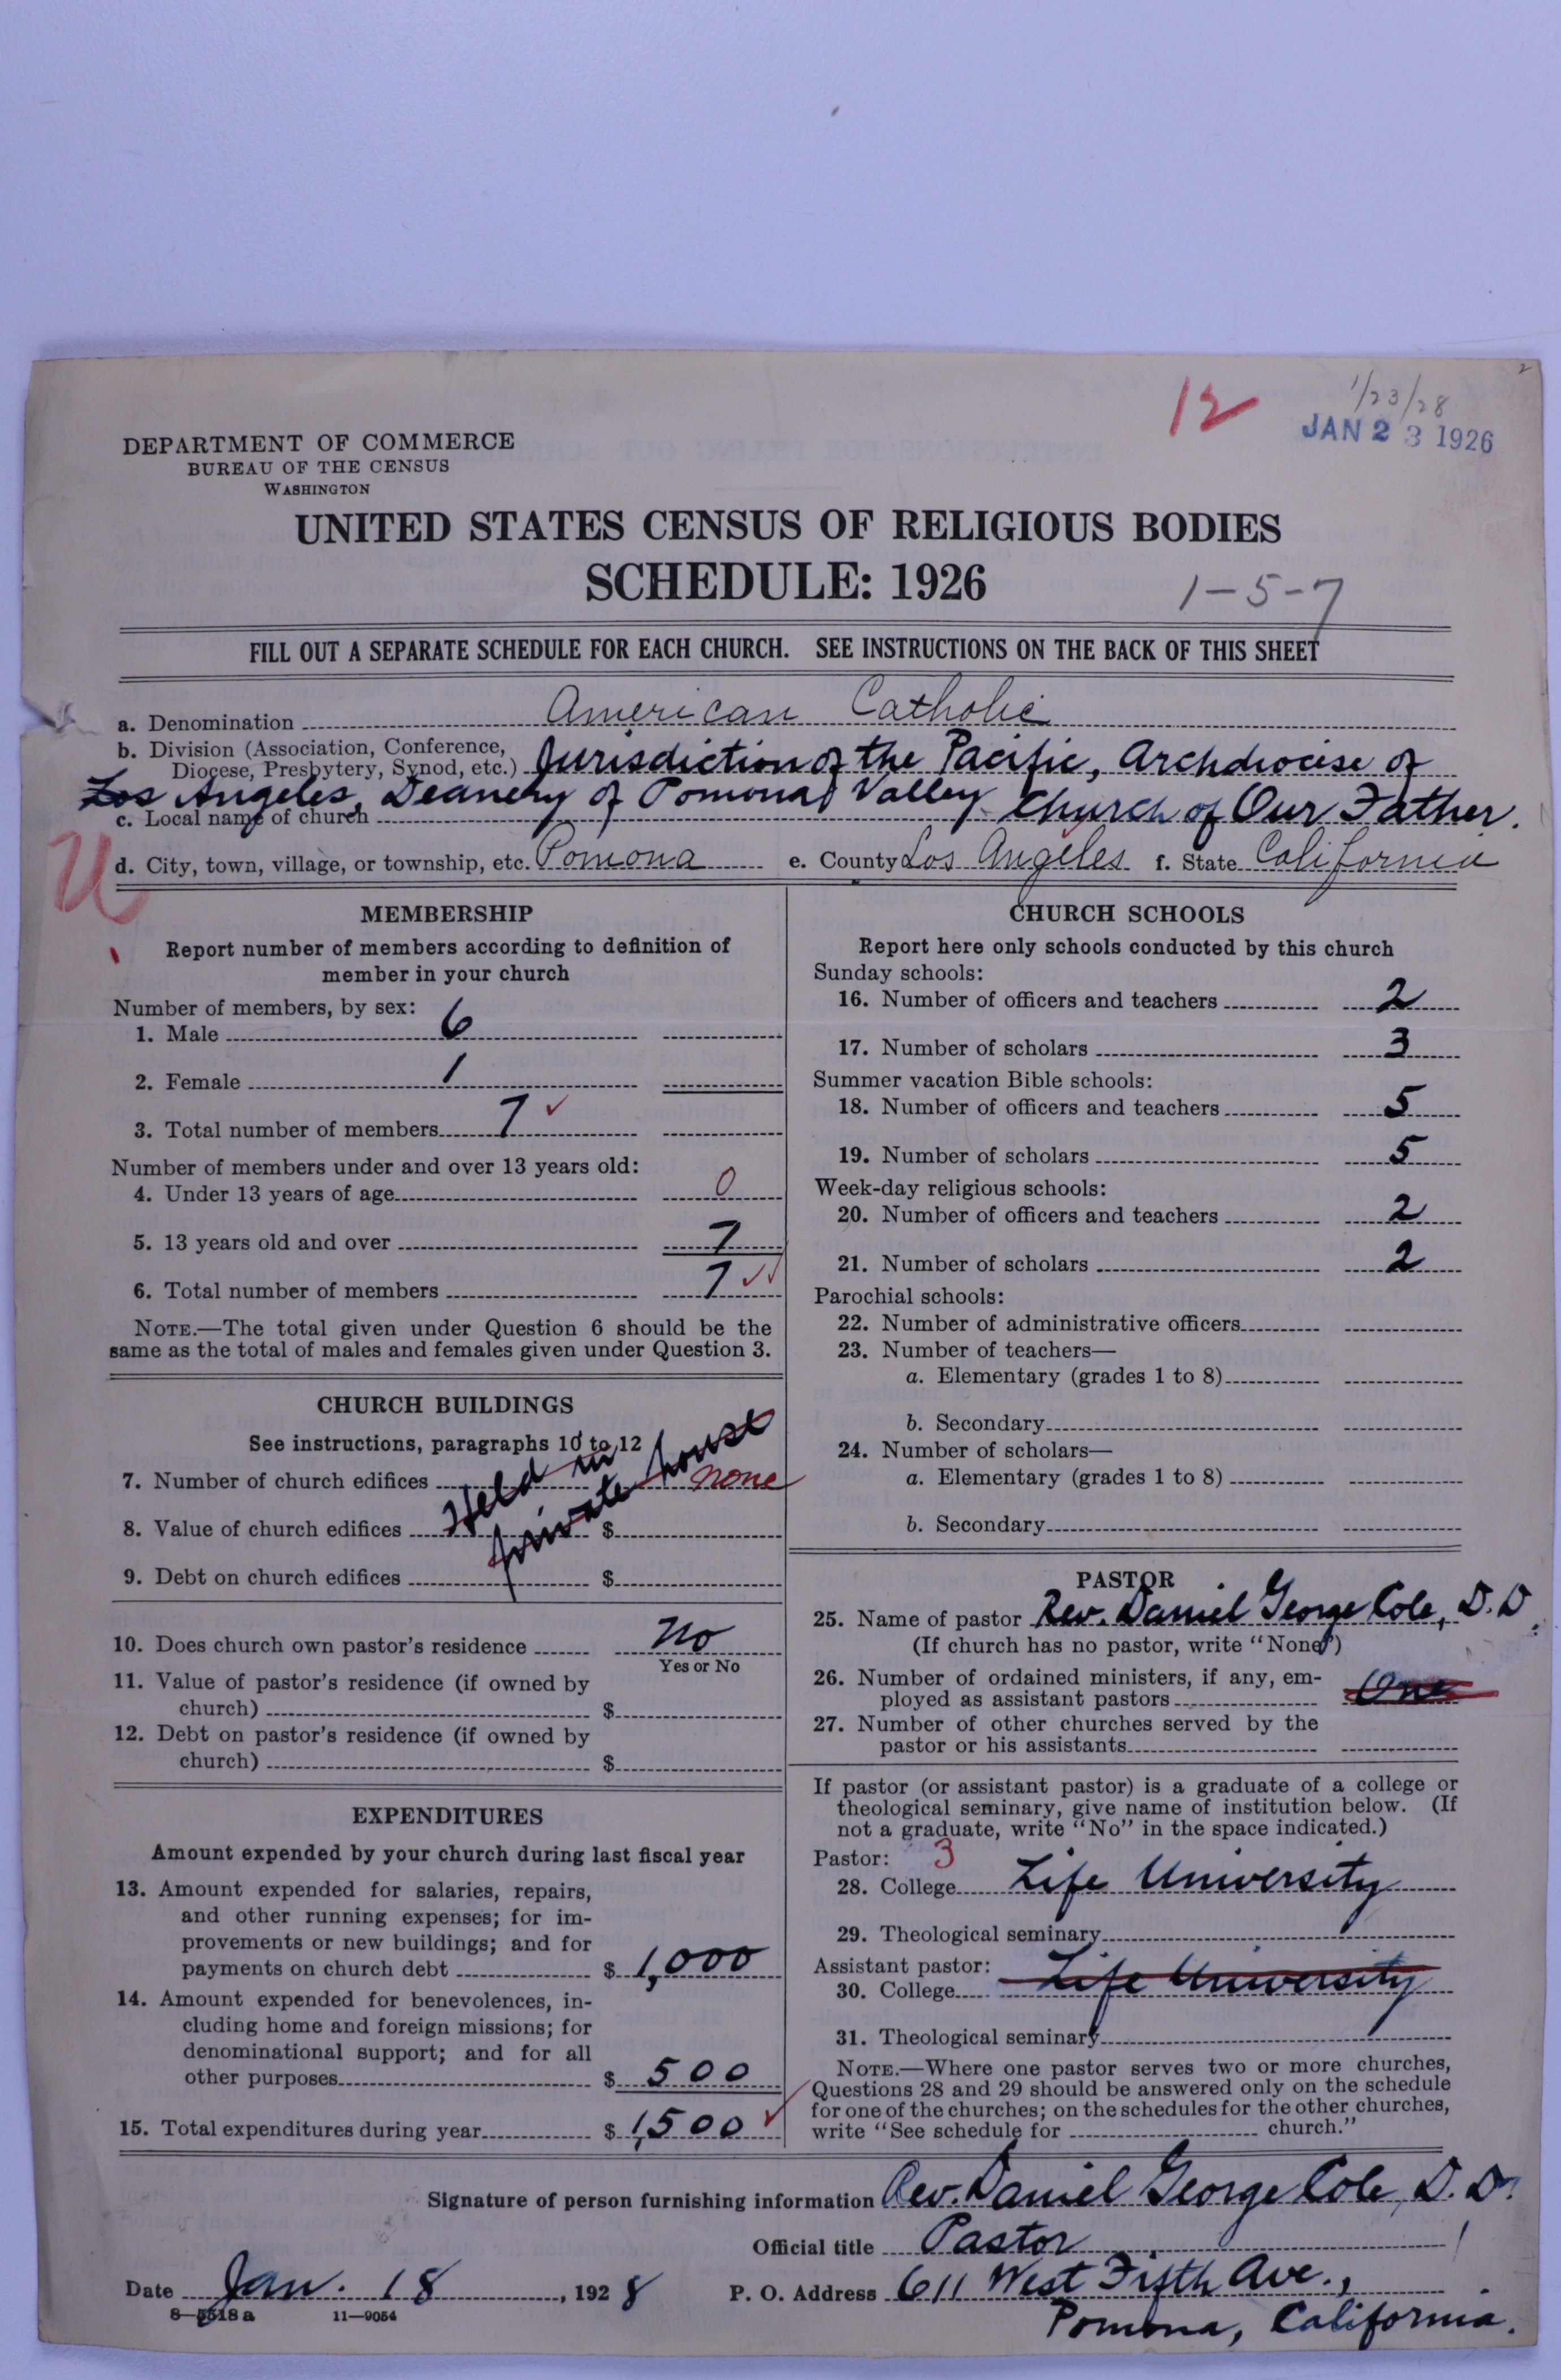 12
1/23/28
JAN 23 1926
2
DEPARTMENT OF COMMERCE
BUREAU OF THE CENSUS
WASHINGTON
UNITED STATES CENSUS OF RELIGIOUS BODIES
SCHEDULE: 1926
1-5-7
FILL OUT A SEPARATE SCHEDULE FOR EACH CHURCH. SEE INSTRUCTIONS ON THE BACK OF THIS SHEET
a. Denomination American Catholic
b. Division (Association, Conference, Diocese, Presbytery, Synod, etc.) Jurisdiction of the Pacific, Archdiocese of
Los Angeles, Deanery of Pomona Valley
c. Local name of church Church of Our Father.
d. City, town, village, or township, etc. Pomona e. County Los Angeles f. State California
U
MEMBERSHIP
Report number of members according to definition of
member in your church
Number of members, by sex:
1. Male 6
2. Female 1
3. Total number of members 7 ✓
Number of members under and over 13 years old:
4. Under 13 years of age 0
5. 13 years old and over 7
6. Total number of members 7 ✓✓
NOTE.—The total given under Question 6 should be the
same as the total of males and females given under Question 3.
CHURCH BUILDINGS
See instructions, paragraphs 10 to 12
7. Number of church edifices none
Held in
private house
8. Value of church edifices $
9. Debt on church edifices $
10. Does church own pastor's residence No
Yes or No
11. Value of pastor's residence (if owned by
church) $
12. Debt on pastor's residence (if owned by
church) $
EXPENDITURES
Amount expended by your church during last fiscal year
13. Amount expended for salaries, repairs,
and other running expenses; for im-
provements or new buildings; and for
payments on church debt $ 1,000
14. Amount expended for benevolences, in-
cluding home and foreign missions; for
denominational support; and for all
other purposes $ 500
15. Total expenditures during year $ 1,500 ✓
CHURCH SCHOOLS
Report here only schools conducted by this church
Sunday schools:
16. Number of officers and teachers 2
17. Number of scholars 3
Summer vacation Bible schools:
18. Number of officers and teachers 5
19. Number of scholars 5
Week-day religious schools:
20. Number of officers and teachers 2
21. Number of scholars 2
Parochial schools:
22. Number of administrative officers
23. Number of teachers—
a. Elementary (grades 1 to 8)
b. Secondary
24. Number of scholars—
a. Elementary (grades 1 to 8)
b. Secondary
PASTOR
25. Name of pastor Rev. Daniel George Cole, D.D.
(If church has no pastor, write "None")
26. Number of ordained ministers, if any, em-
ployed as assistant pastors One
27. Number of other churches served by the
pastor or his assistants
If pastor (or assistant pastor) is a graduate of a college or
theological seminary, give name of institution below. (If
not a graduate, write "No" in the space indicated.)
Pastor: 3
28. College Life University
29. Theological seminary
Assistant pastor:
30. College Life University
31. Theological seminary
NOTE.—Where one pastor serves two or more churches,
Questions 28 and 29 should be answered only on the schedule
for one of the churches; on the schedules for the other churches,
write "See schedule for church."
Signature of person furnishing information Rev. Daniel George Cole, D.D.
Official title Pastor
Date Jan. 18, 1928 P. O. Address 611 West Fifth Ave.,
Pomona, California.
8—5518 a 11—9054